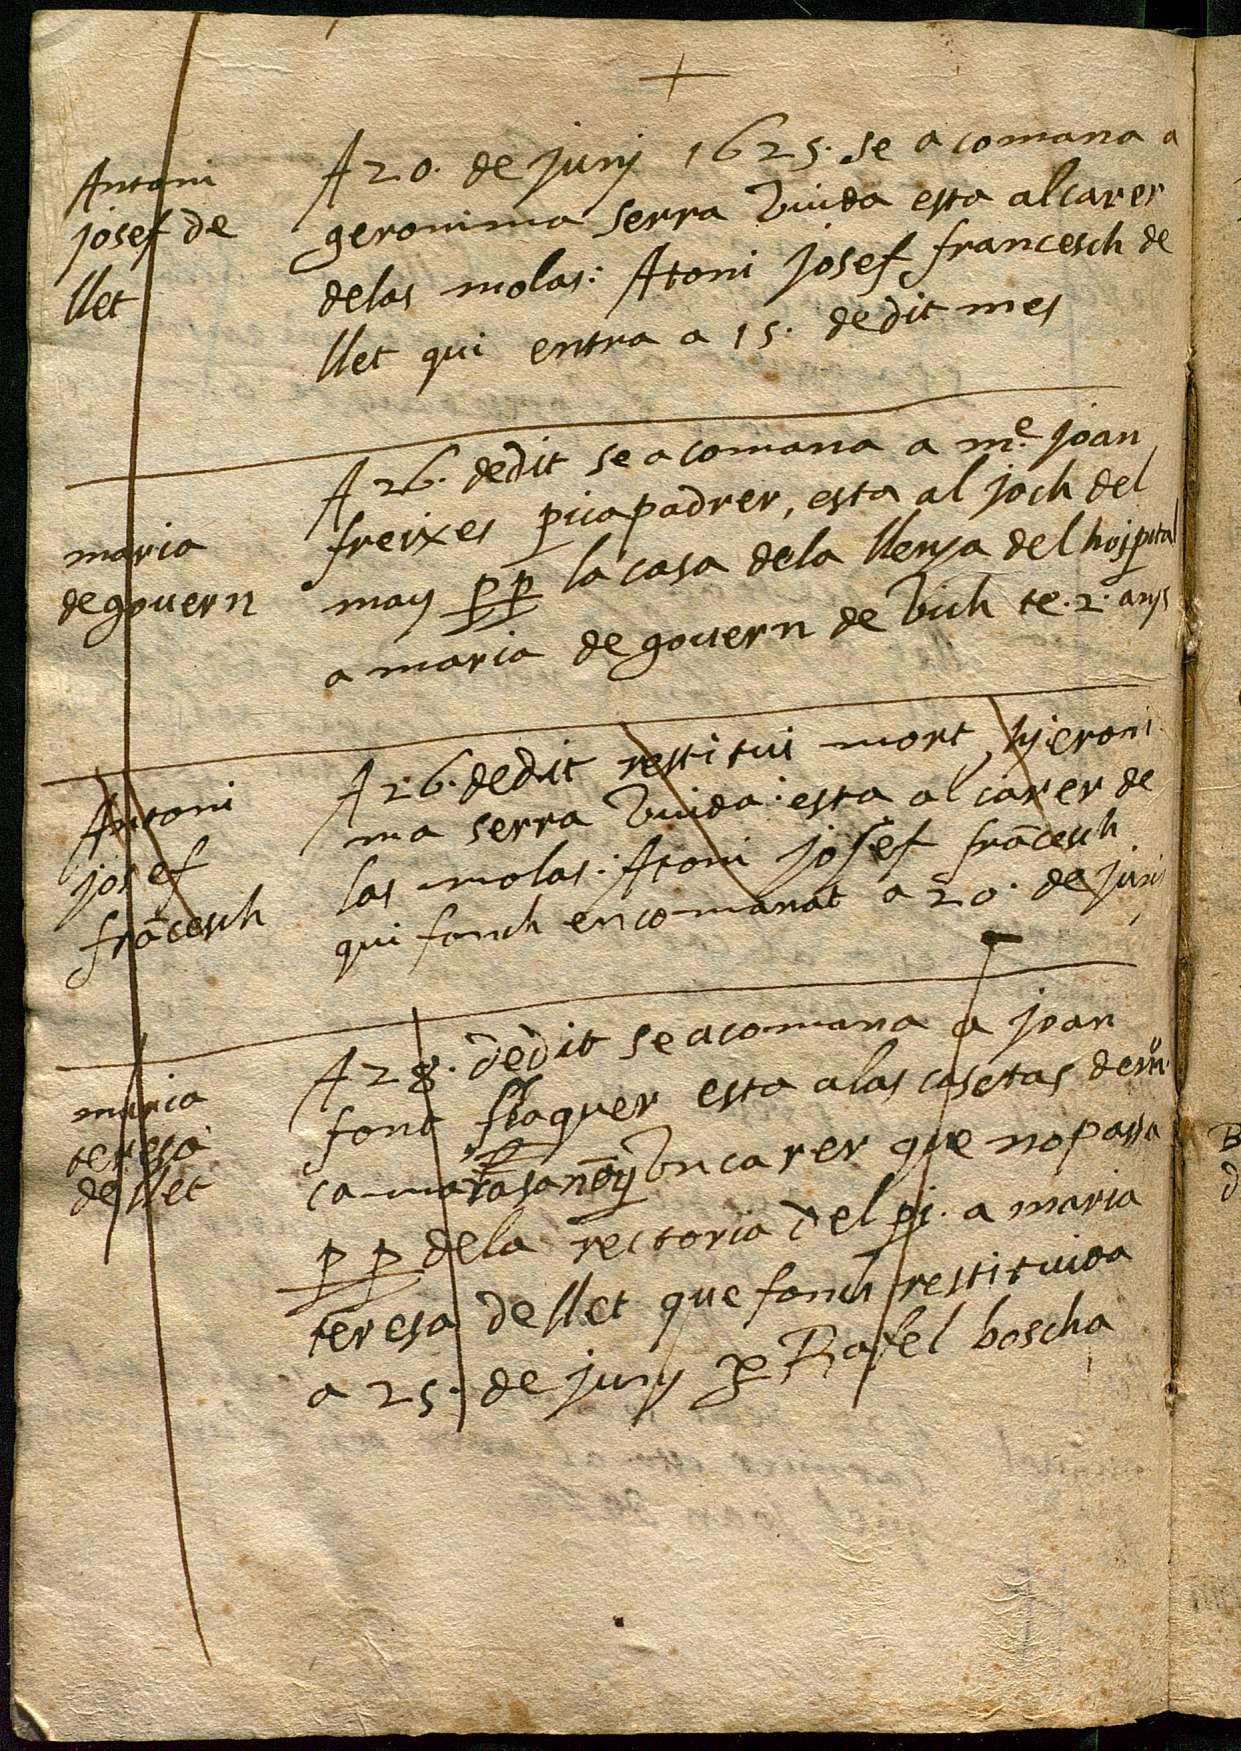 +
Antoni
josef de
llet
A 20. de juny 1625. se a comana a
geronima serra viuda esta al carer
de las molas: Atoni josef francesch de
llet qui entra a 15. de dit mes
maria
de govern
A 26. de dit se a comana a mᵉ joan
freixes picapadrer, esta al joch del
may p p la casa de la llenya del hospital
a maria de govern de vich te .2. anys
Antoni
josef
frācesch
A 26. de dit restitui mort hieroni
ma serra viuda: esta al carer de
las molas: Atoni josef frācesch
qui fonch encomanat a 20. de juni
maria
teresa
de llet
A 28. de dit se acomana a joan
font esta a las casetas de
un carer que no passa
p p de la rectoria del pi. a maria
teresa de llet que fonch restituida
a 25. de juny p Rafel boscha